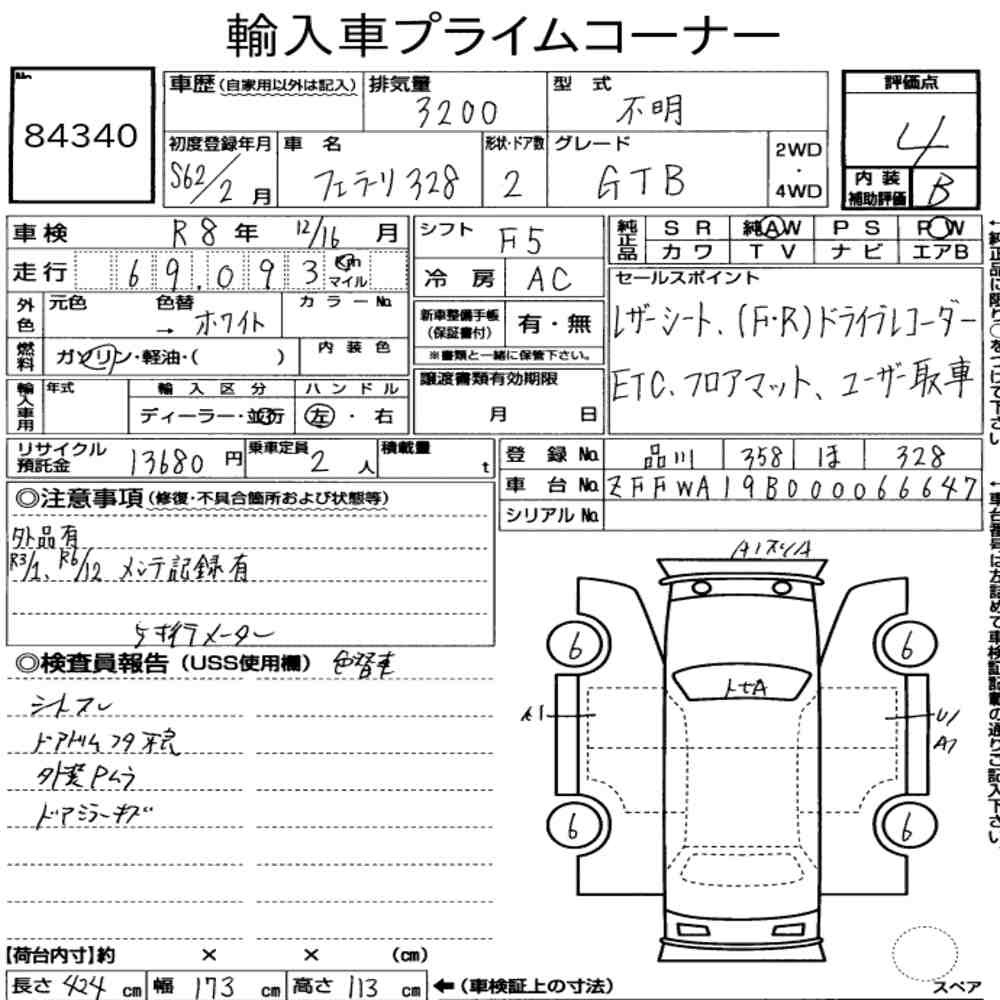 輸入車プライムコーナー
No.
84340
車歴(自家用以外は記入) 排気量 3200 型式 不明
評価点 4
初度登録年月 S62/2月 車名 フェラーリ328 形状・ドア数 2 グレード GTB 2WD・4WD
内装補助評価 B
車検 R8年 12/16月
シフト F5
純正品 SR 純AW PS PW
カワ TV ナビ エアB
走行 69,093 Km マイル
冷房 AC
セールスポイント
外色 元色 色替 → ホワイト カラーNo.
新車整備手帳(保証書付) 有・無
※書類と一緒に保管下さい。
レザーシート、(F・R)ドライブレコーダー
燃料 ガソリン・軽油・( ) 内装色
譲渡書類有効期限
月 日
ETC、フロアマット、ユーザー取車
輸入車用 年式 輸入区分 ハンドル
ディーラー・並行 左・右
リサイクル預託金 13680円 乗車定員 2人 積載量 t
登録No. 品川 358 ほ 328
車台No. ZFFWA19B000066647
シリアルNo.
◎注意事項(修復・不具合箇所および状態等)
外品有
R3/1、R6/12 メンテ記録有
5ケタメーター
◎検査員報告(USS使用欄) 色替車
シートスレ
ドアトリムフタ不良
外装Pムラ
ドアミラーキズ
A1
6 6
トビA
A1 U1
A1
6 6
【荷台内寸】約 × × (cm)
長さ 424 cm 幅 173 cm 高さ 113 cm ←(車検証上の寸法)
スペア
←純正品に限り○をつけて下さい
←車台番号は左詰めで車検証記載の通りご記入下さい。